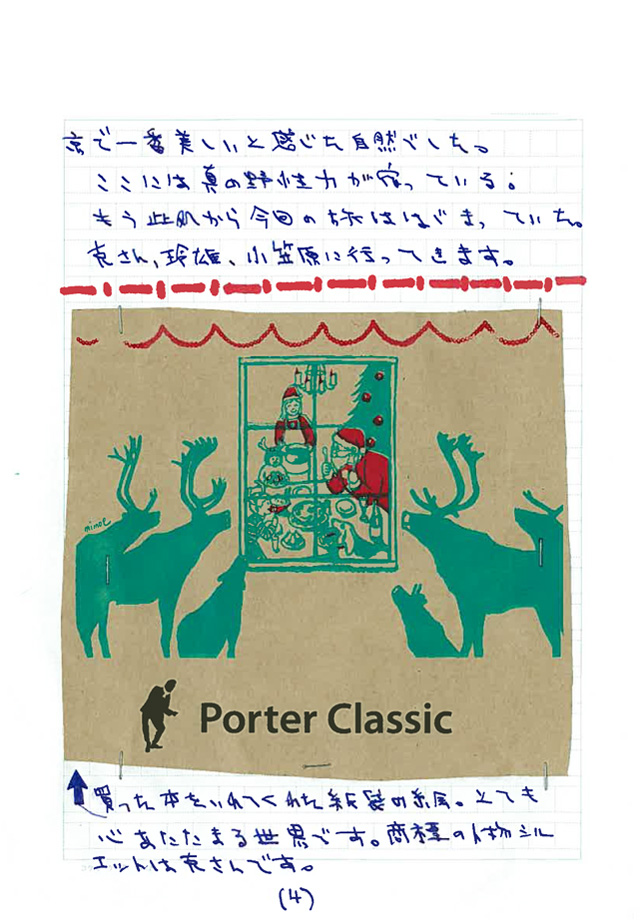 京で一番美しいと感じた自然でした。
ここには真の野性力が宿っている。
もう此肌から今回の旅ははじまっていた。
克さん、玲雄、小笠原に行ってきます。
mimoe
Porter Classic
買った本をいれてくれた紙袋の絵。とても
心あたたまる世界です。商標の人物シル
エットは克さんです。
(4)